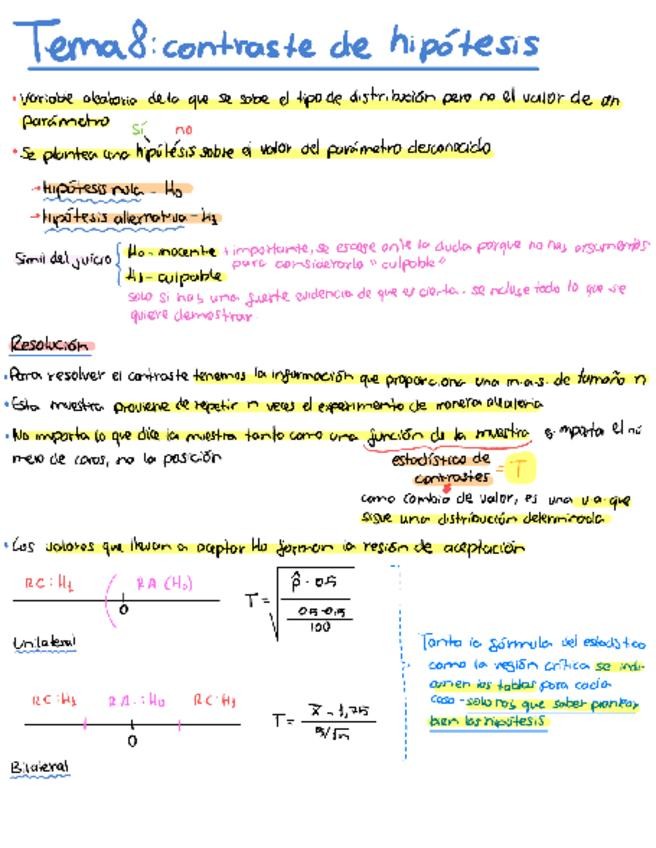 Tema 8: contraste de hipótesis
• Variable aleatoria de la que se sabe el tipo de distribución pero no el valor de un
parámetro
sí no
• Se plantea una hipótesis sobre el valor del parámetro desconocido
→ Hipótesis nula - H₀
→ Hipótesis alternativa - H₁
Simil del juicio
H₀ - inocente + importante, se escoge ante la duda porque no hay argumentos
para considerarlo "culpable"
H₁ - culpable
solo si hay una fuerte evidencia de que es cierta. se incluye todo lo que se
quiere demostrar
Resolución
• Para resolver el contraste tenemos la información que proporciona una m.a.s. de tamaño n
• Esta muestra proviene de repetir n veces el experimento de manera aleatoria
• No importa lo que dice la muestra tanto como una función de la muestra ej. importa el nú
mero de caras, no la posición
estadístico de
contrastes = T
como cambia de valor, es una v.a. que
sigue una distribución determinada
• Los valores que llevan a aceptar H₀ forman la región de aceptación
RC: H₁ RA (H₀)
0
T = √ p̂ - 0.5 / 0.5·0.5 / 100
Unilateral
Tanto la fórmula del estadístico
como la región crítica se indi-
can en las tablas para cada
caso - solo hay que saber plantear
bien las hipótesis
RC: H₁ RA: H₀ RC: H₁
0
T = x̄ - 1,75 / /√n
Bilateral